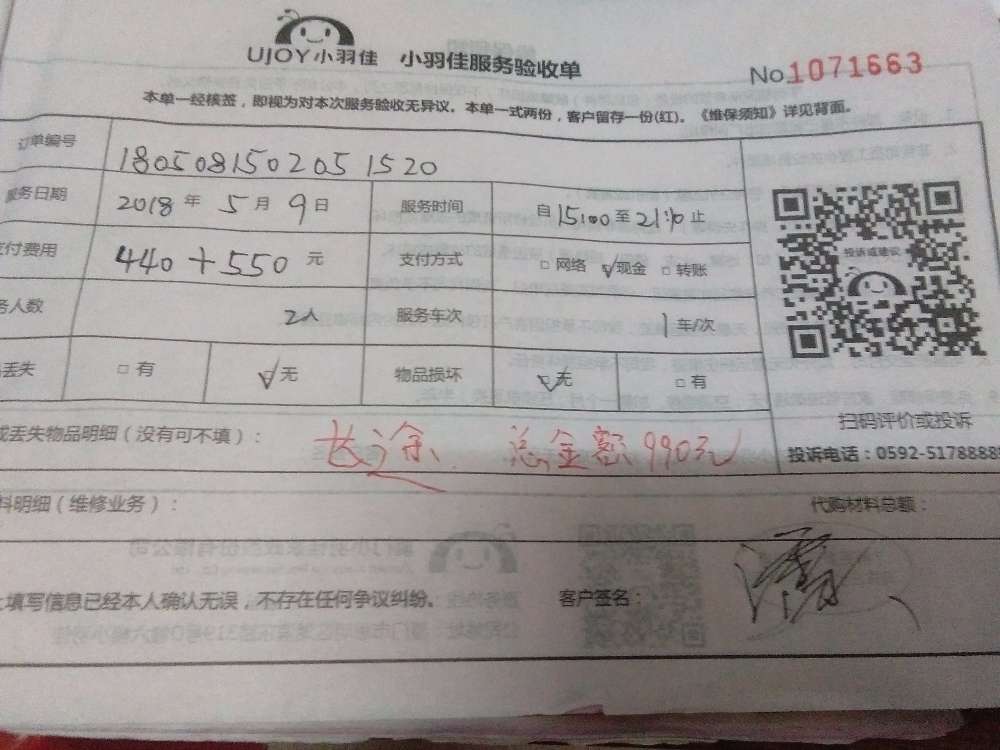 UJOY小羽佳 小羽佳服务验收单 No.1071663
本单一经核签，即视为对本次服务验收无异议。本单一式两份，客户留存一份(红)。《维保须知》详见背面。
订单编号 180508150205 1520
服务日期 2018年5月9日 服务时间 自15:00至21:10止
支付费用 440+550元 支付方式 □网络 ☑现金 □转账
务人数 2人 服务车次 1车/次
丢失 □有 ☑无 物品损坏 ☑无 □有
投诉或建议
扫码评价或投诉
投诉电话：0592-5178888
或丢失物品明细（没有可不填）： 长途、总金额990元
料明细（维修业务）： 代购材料总额：
填写信息已经本人确认无误，不存在任何争议纠纷。 客户签名：